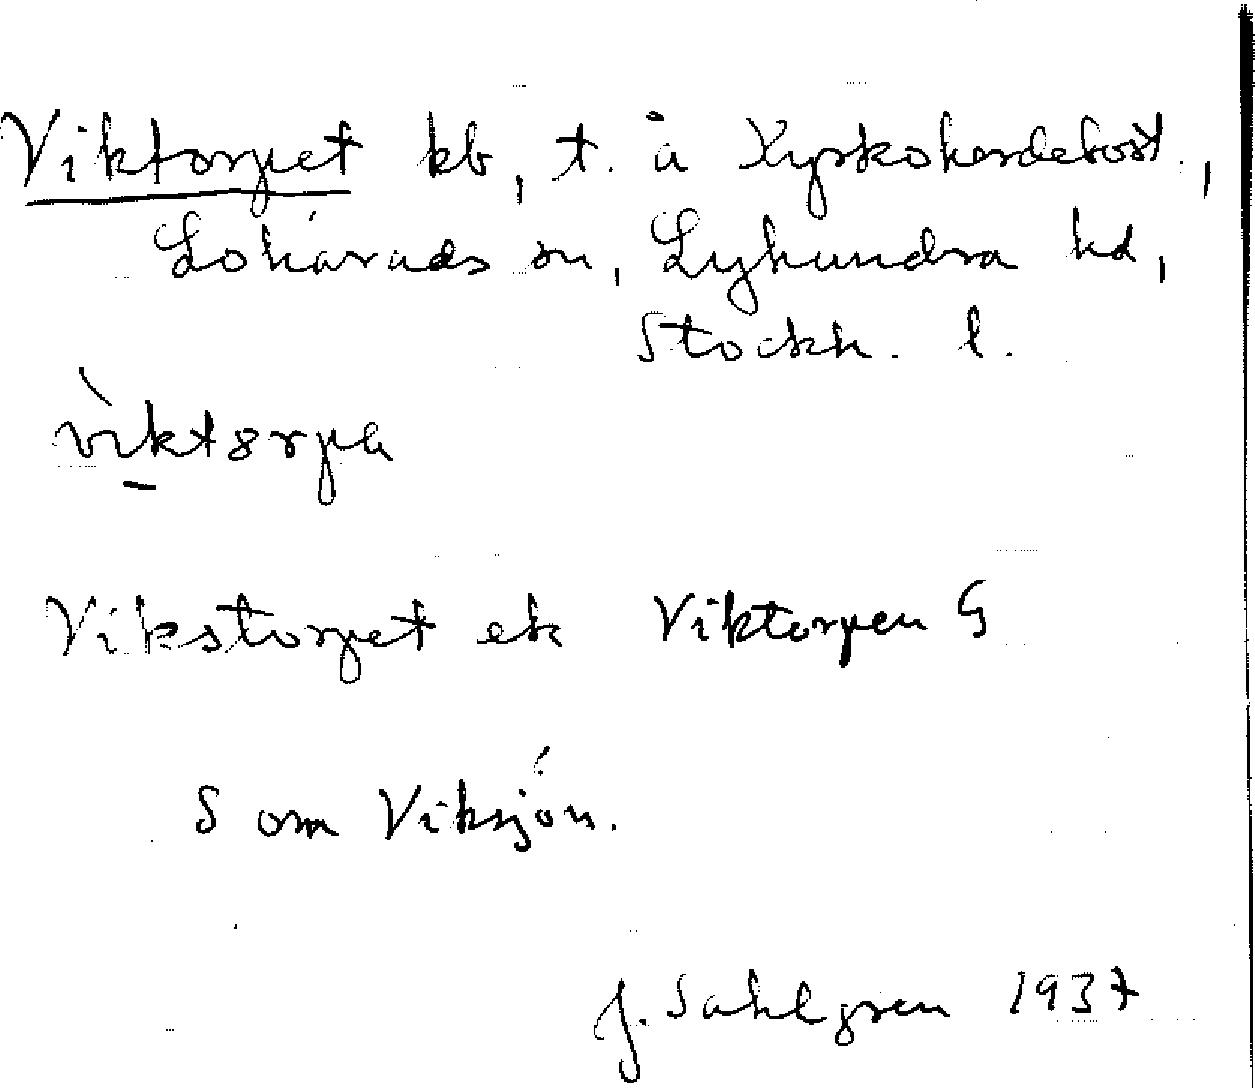 Viktorpet kb, t. å Kyrkoherdebost.,
Lohärads sn, Lyhundra hd,
Stockh. l.
Vikstorpet ek Viktorpen G
S om Viksjön.
J. Sahlgren 1937